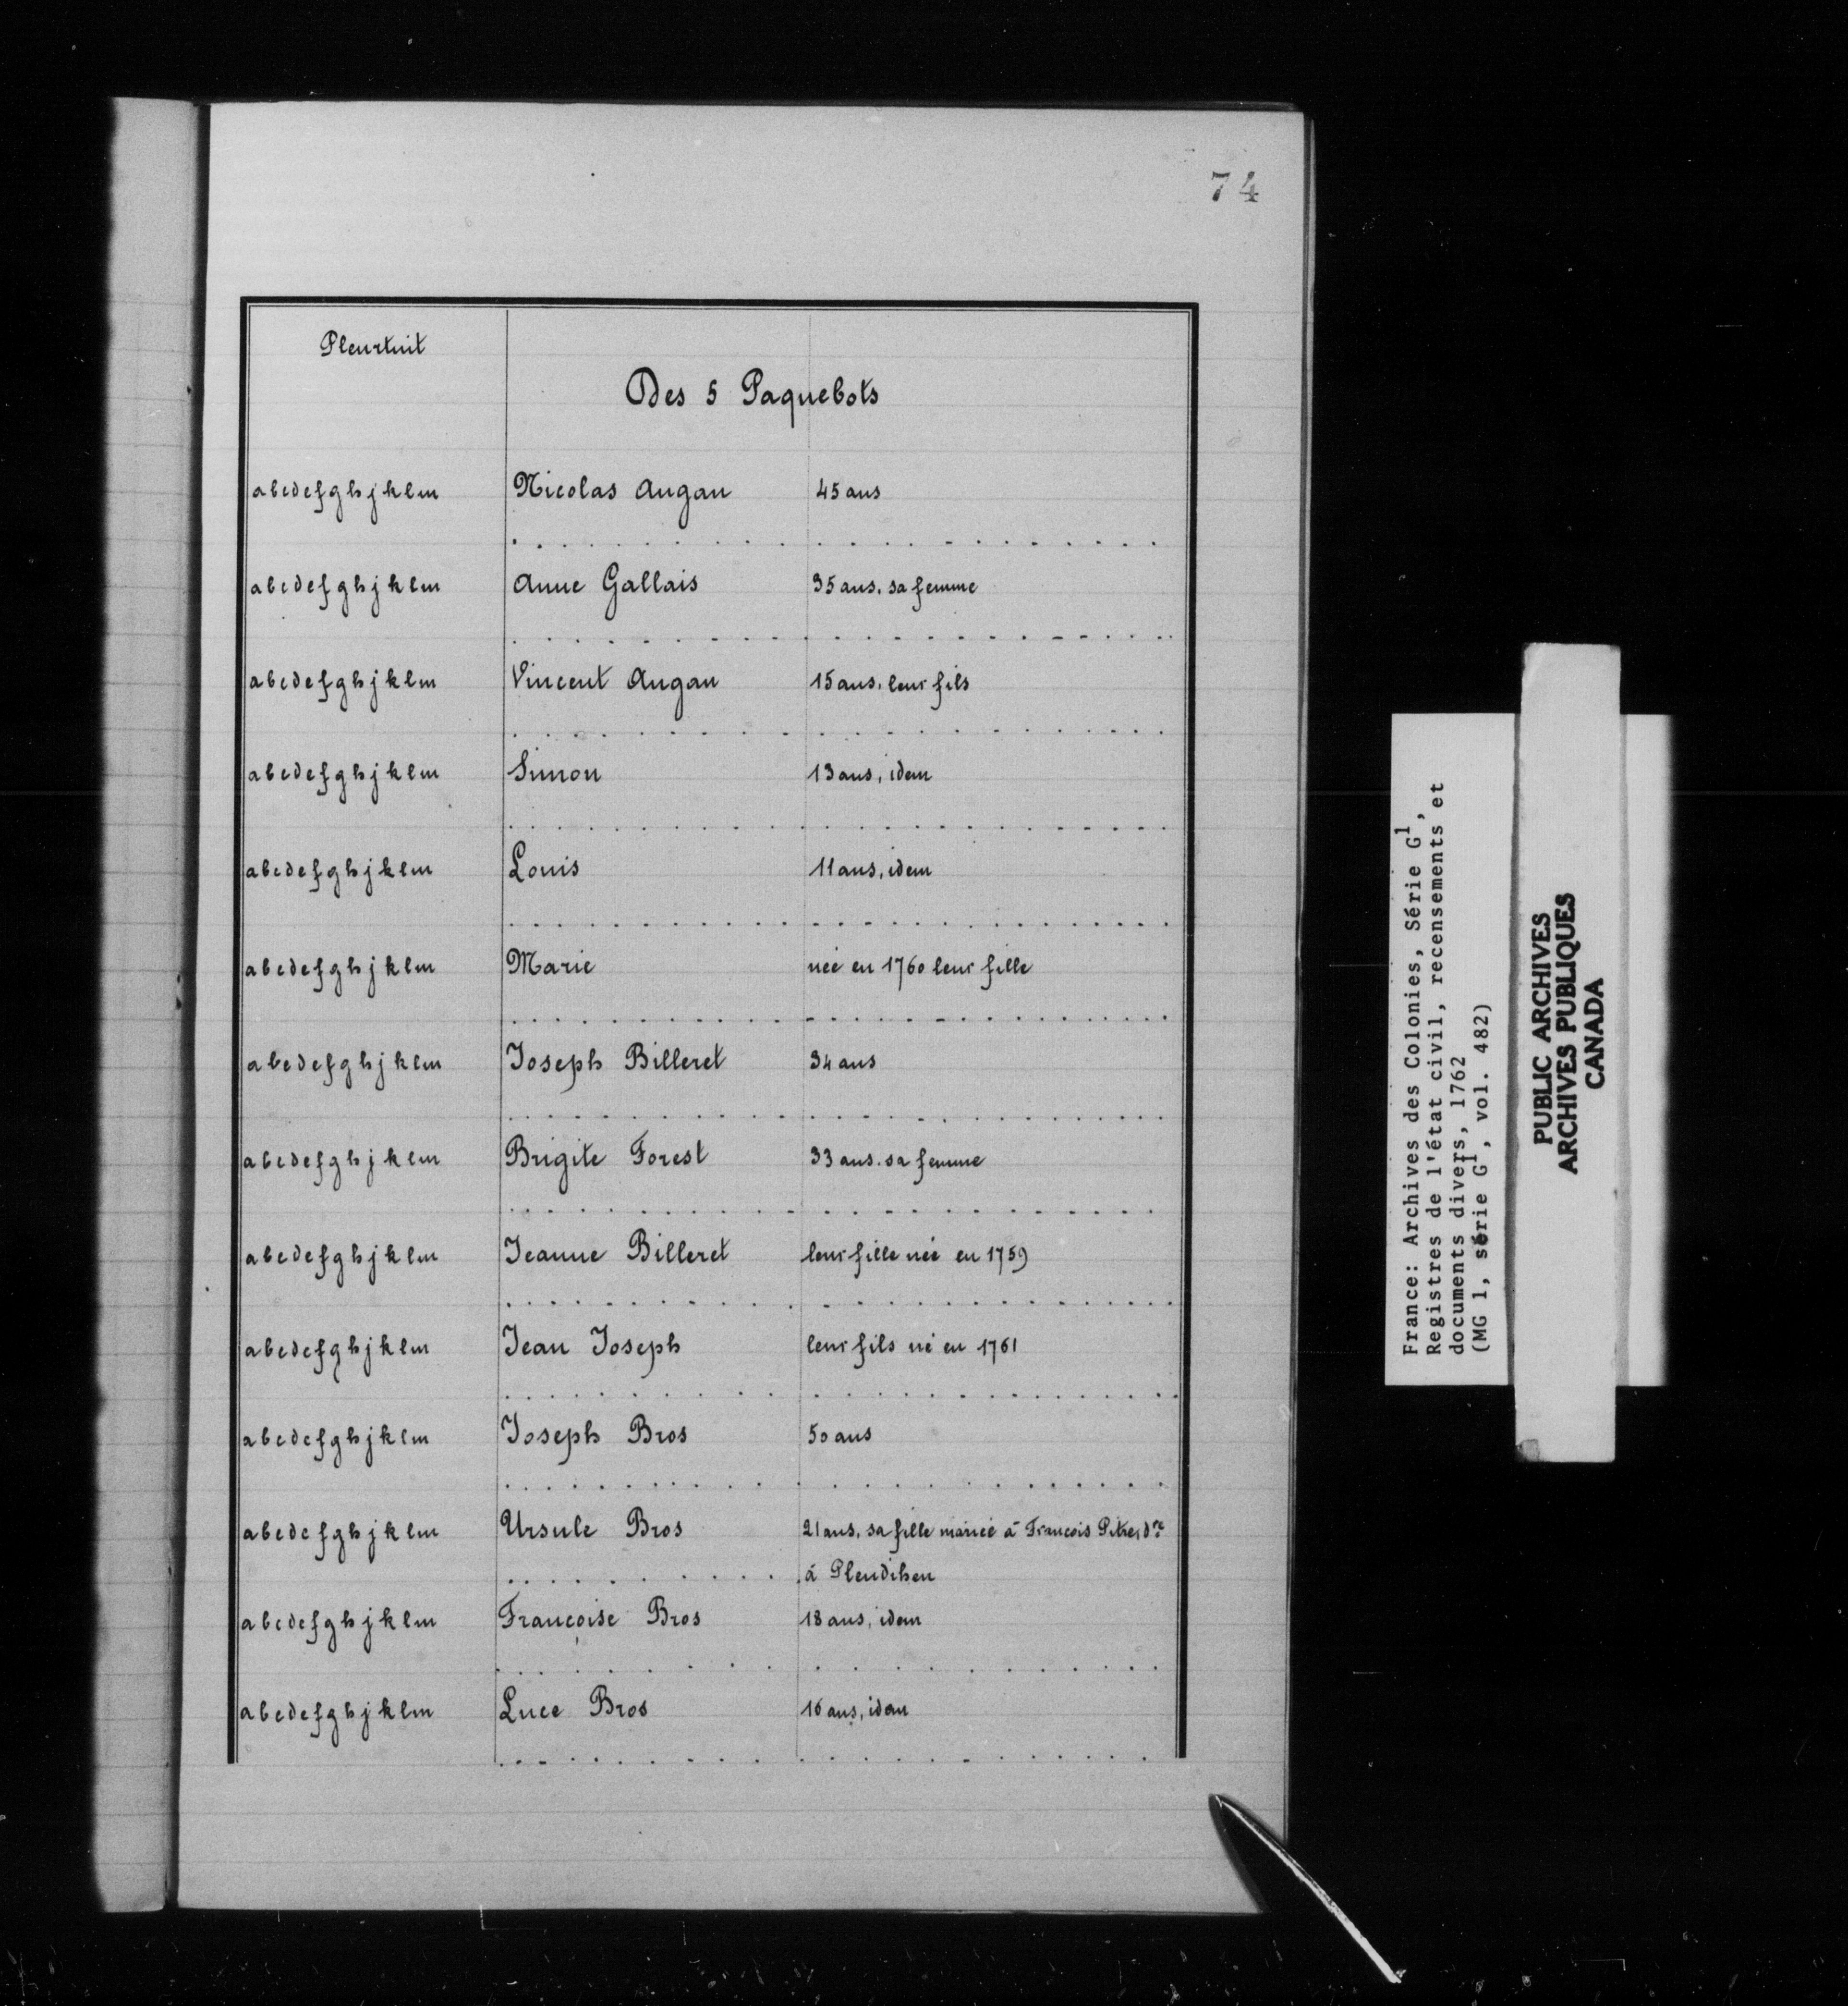 74
Pleurtuit
Des 5 Paquebots
abcdefghjklm Nicolas Augan 45 ans
abcdefghjklm Anne Gallais 35 ans, sa femme
abcdefghjklm Vincent Augan 15 ans, leur fils
abcdefghjklm Simon 13 ans, idem
abcdefghjklm Louis 11 ans, idem
abcdefghjklm Marie née en 1760 leur fille
abcdefghjklm Joseph Billeret 34 ans
abcdefghjklm Brigite Forest 33 ans. sa femme
abcdefghjklm Jeanne Billeret leur fille née en 1759
abcdefghjklm Jean Joseph leur fils né en 1761
abcdefghjklm Joseph Bros 50 ans
abcdefghjklm Ursule Bros 21 ans, sa fille mariée à Francois Pitre, dre
à Pleudihen
abcdefghjklm Françoise Bros 18 ans, idem
abcdefghjklm Luce Bros 16 ans, idem
France: Archives des Colonies, Série G1,
Registres de l'état civil, recensements et
documents divers, 1762
(MG 1, série G1, vol. 482)
PUBLIC ARCHIVES
ARCHIVES PUBLIQUES
CANADA